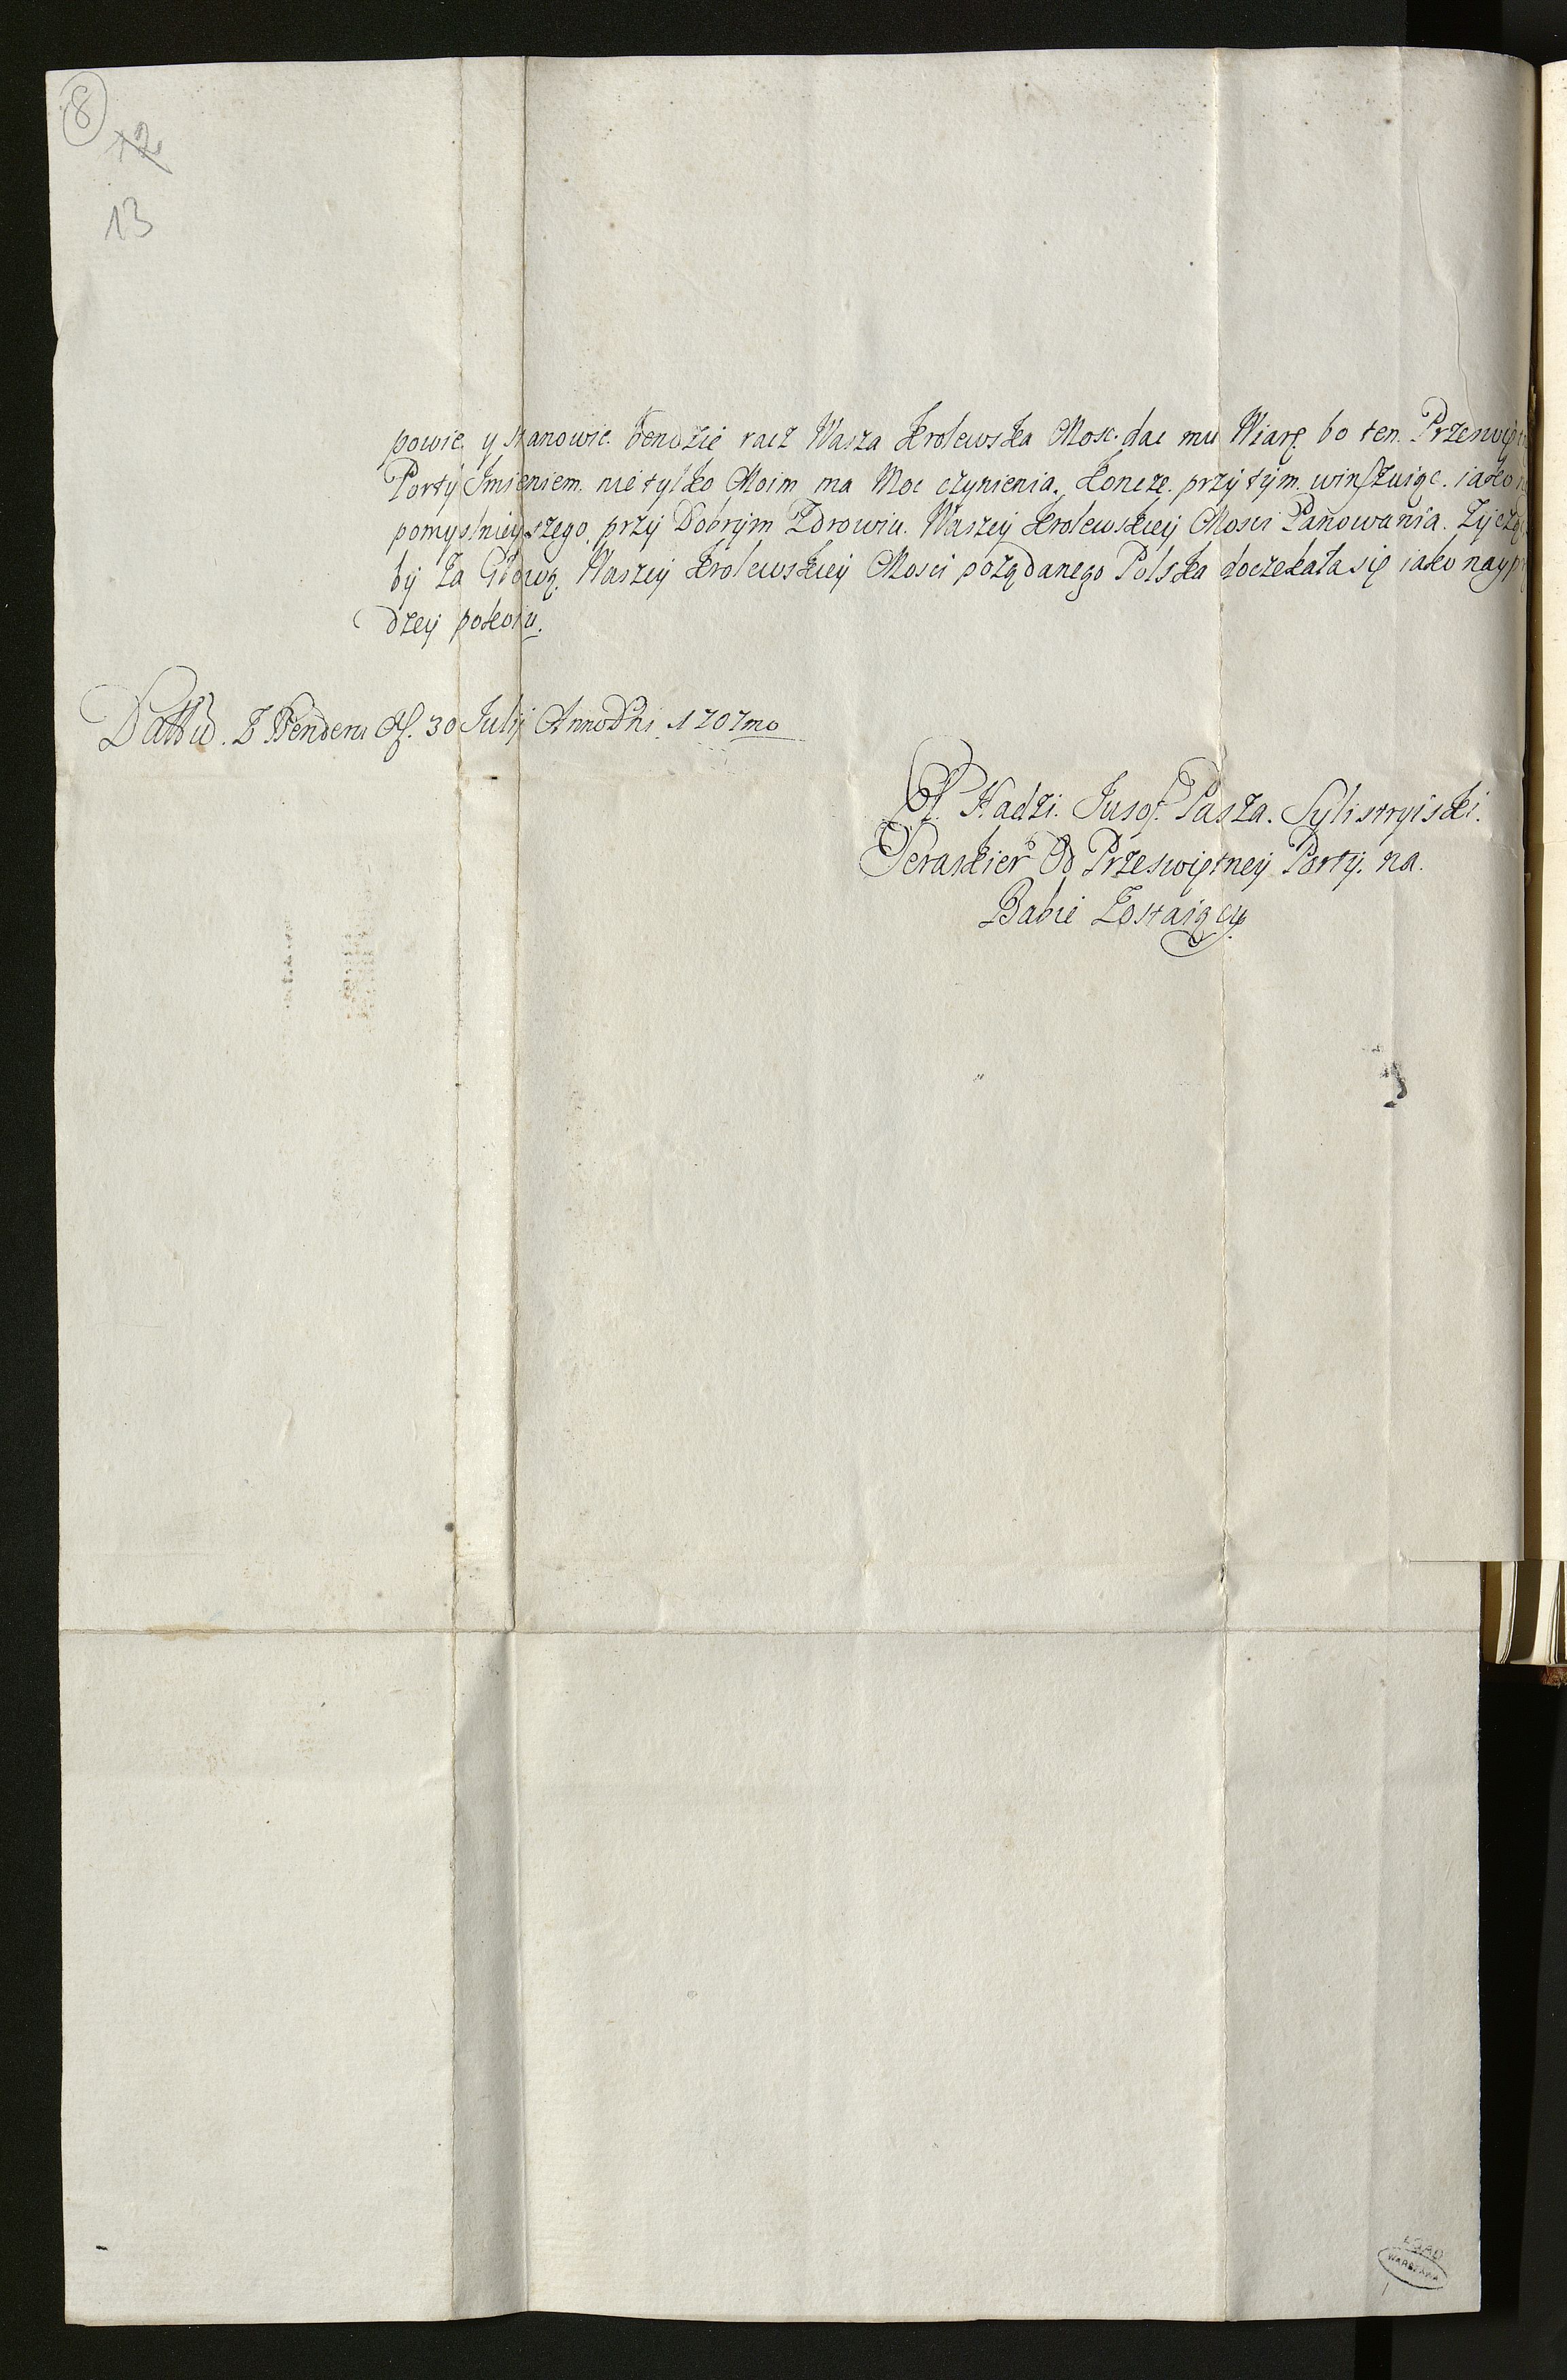 8
12
13
powie y stanowic bendzie racz Wasza Krolewska Mosc. dac mu Wiarę bo ten Przeswięt
Porty Imieniem nie tylko Moim ma Moc czynienia. Koncze. przy tym. winszuiąc. iako
pomyslnieyszego, przy Dobrym Zdrowiu. Waszey Krolewskiey Mosci Panowania. Zycząc
by Za Głową. Waszey Krolewskiey Mosci poządanego Polska doczekała się iako nayprę
dzey pokoiu.
Dattu. Z Benderu 30 Julij Anno Dni 1707mo
Hadzi. Jusof. Pasza. Sylistryiski.
Seraskier Od Przeswiętney Porty. na.
Babie Zostaiący.
AGAD
WARSZAWA